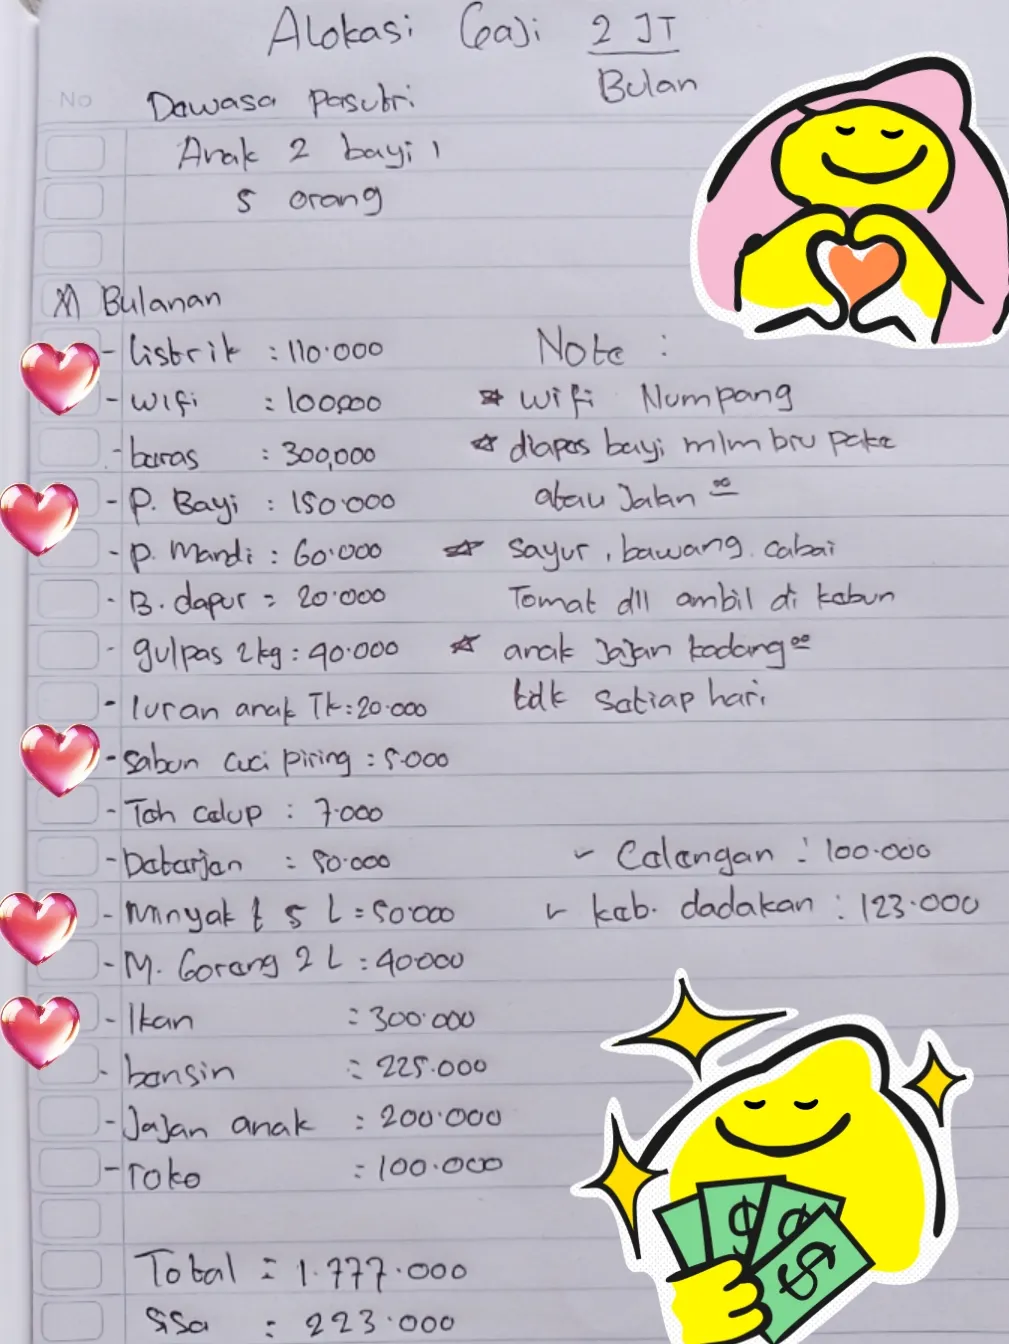 Alokasi Gaji 2 JT
Bulan
No
Dewasa pasutri
Anak 2 bayi 1
5 orang
Bulanan
- Listrik : 110.000
- wifi : 100.000
- beras : 300,000
- P. Bayi : 150.000
- P. Mandi : 60.000
- B. dapur = 20.000
- gulpas 2kg : 40.000
- Iuran anak TK : 20.000
- Sabun cuci piring : 5.000
- Teh celup : 7.000
- Deterjen : 50.000
- Minyak t 5 L = 50.000
- M. Goreng 2 L : 40000
- Ikan = 300.000
- bensin = 225.000
- Jajan anak : 200.000
- Toke = 100.000
Total = 1.777.000
Sisa : 223.000
Note :
☆ wifi Numpang
☆ diapes bayi mlm bru pake
atau Jalan ∞
☆ sayur, bawang. cabai
Tomat dll ambil di kebun
☆ anak Jajan kadang ∞
tdk setiap hari
✓ Celengan : 100.000
✓ keb. dadakan : 123.000